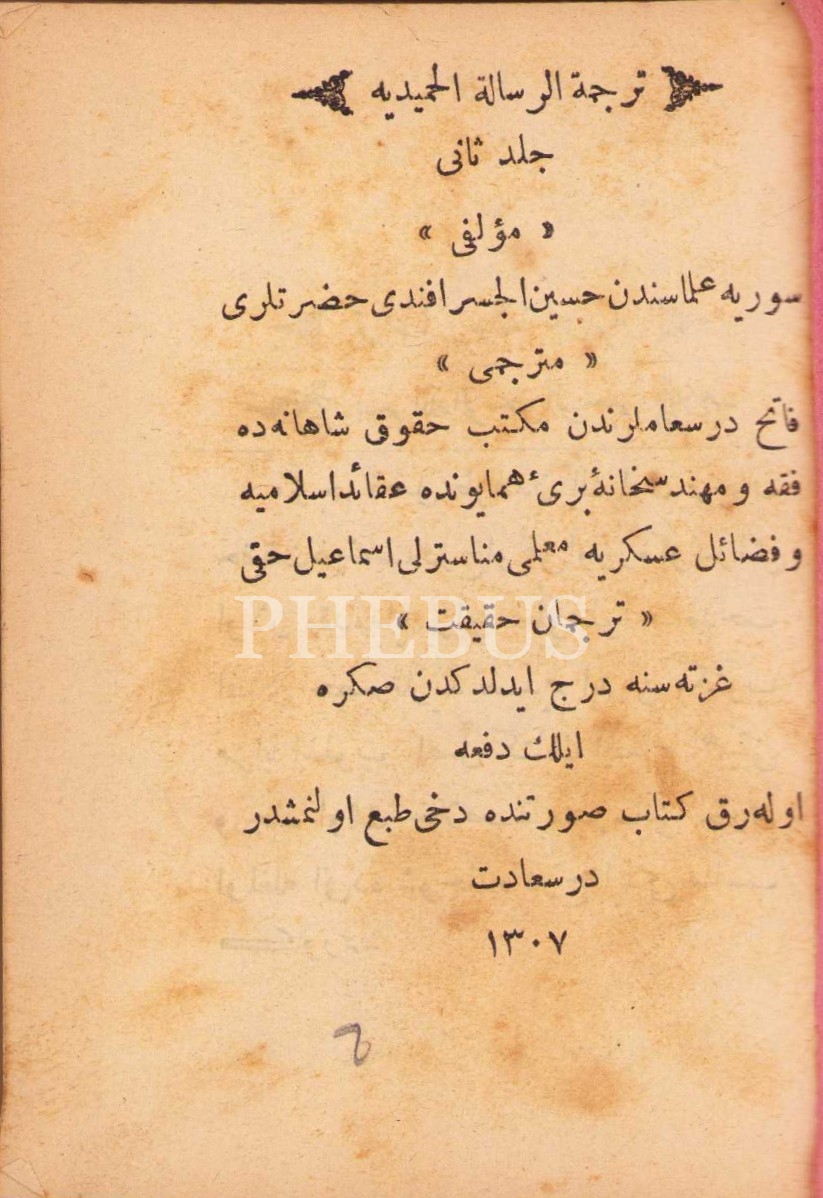 ترجمة الرسالة الحميديه
جلد ثانى
« مؤلفى »
سوريه علماسندن حسين الجسر افندى حضرتلرى
« مترجمى »
فاتح درسعاملرندن مكتب حقوق شاهانه‌ده
فقه و مهندسخانهٔ برىٔ همايونده عقائد اسلاميه
و فضائل عسكريه معلمى مناسترلى اسماعيل حقى
« ترجمان حقيقت »
PHEBUS
غزته‌سنه درج ايدلدكدن صكره
ايلك دفعه
اوله‌رق كتاب صورتنده دخى طبع اولنمشدر
درسعادت
١٣٠٧